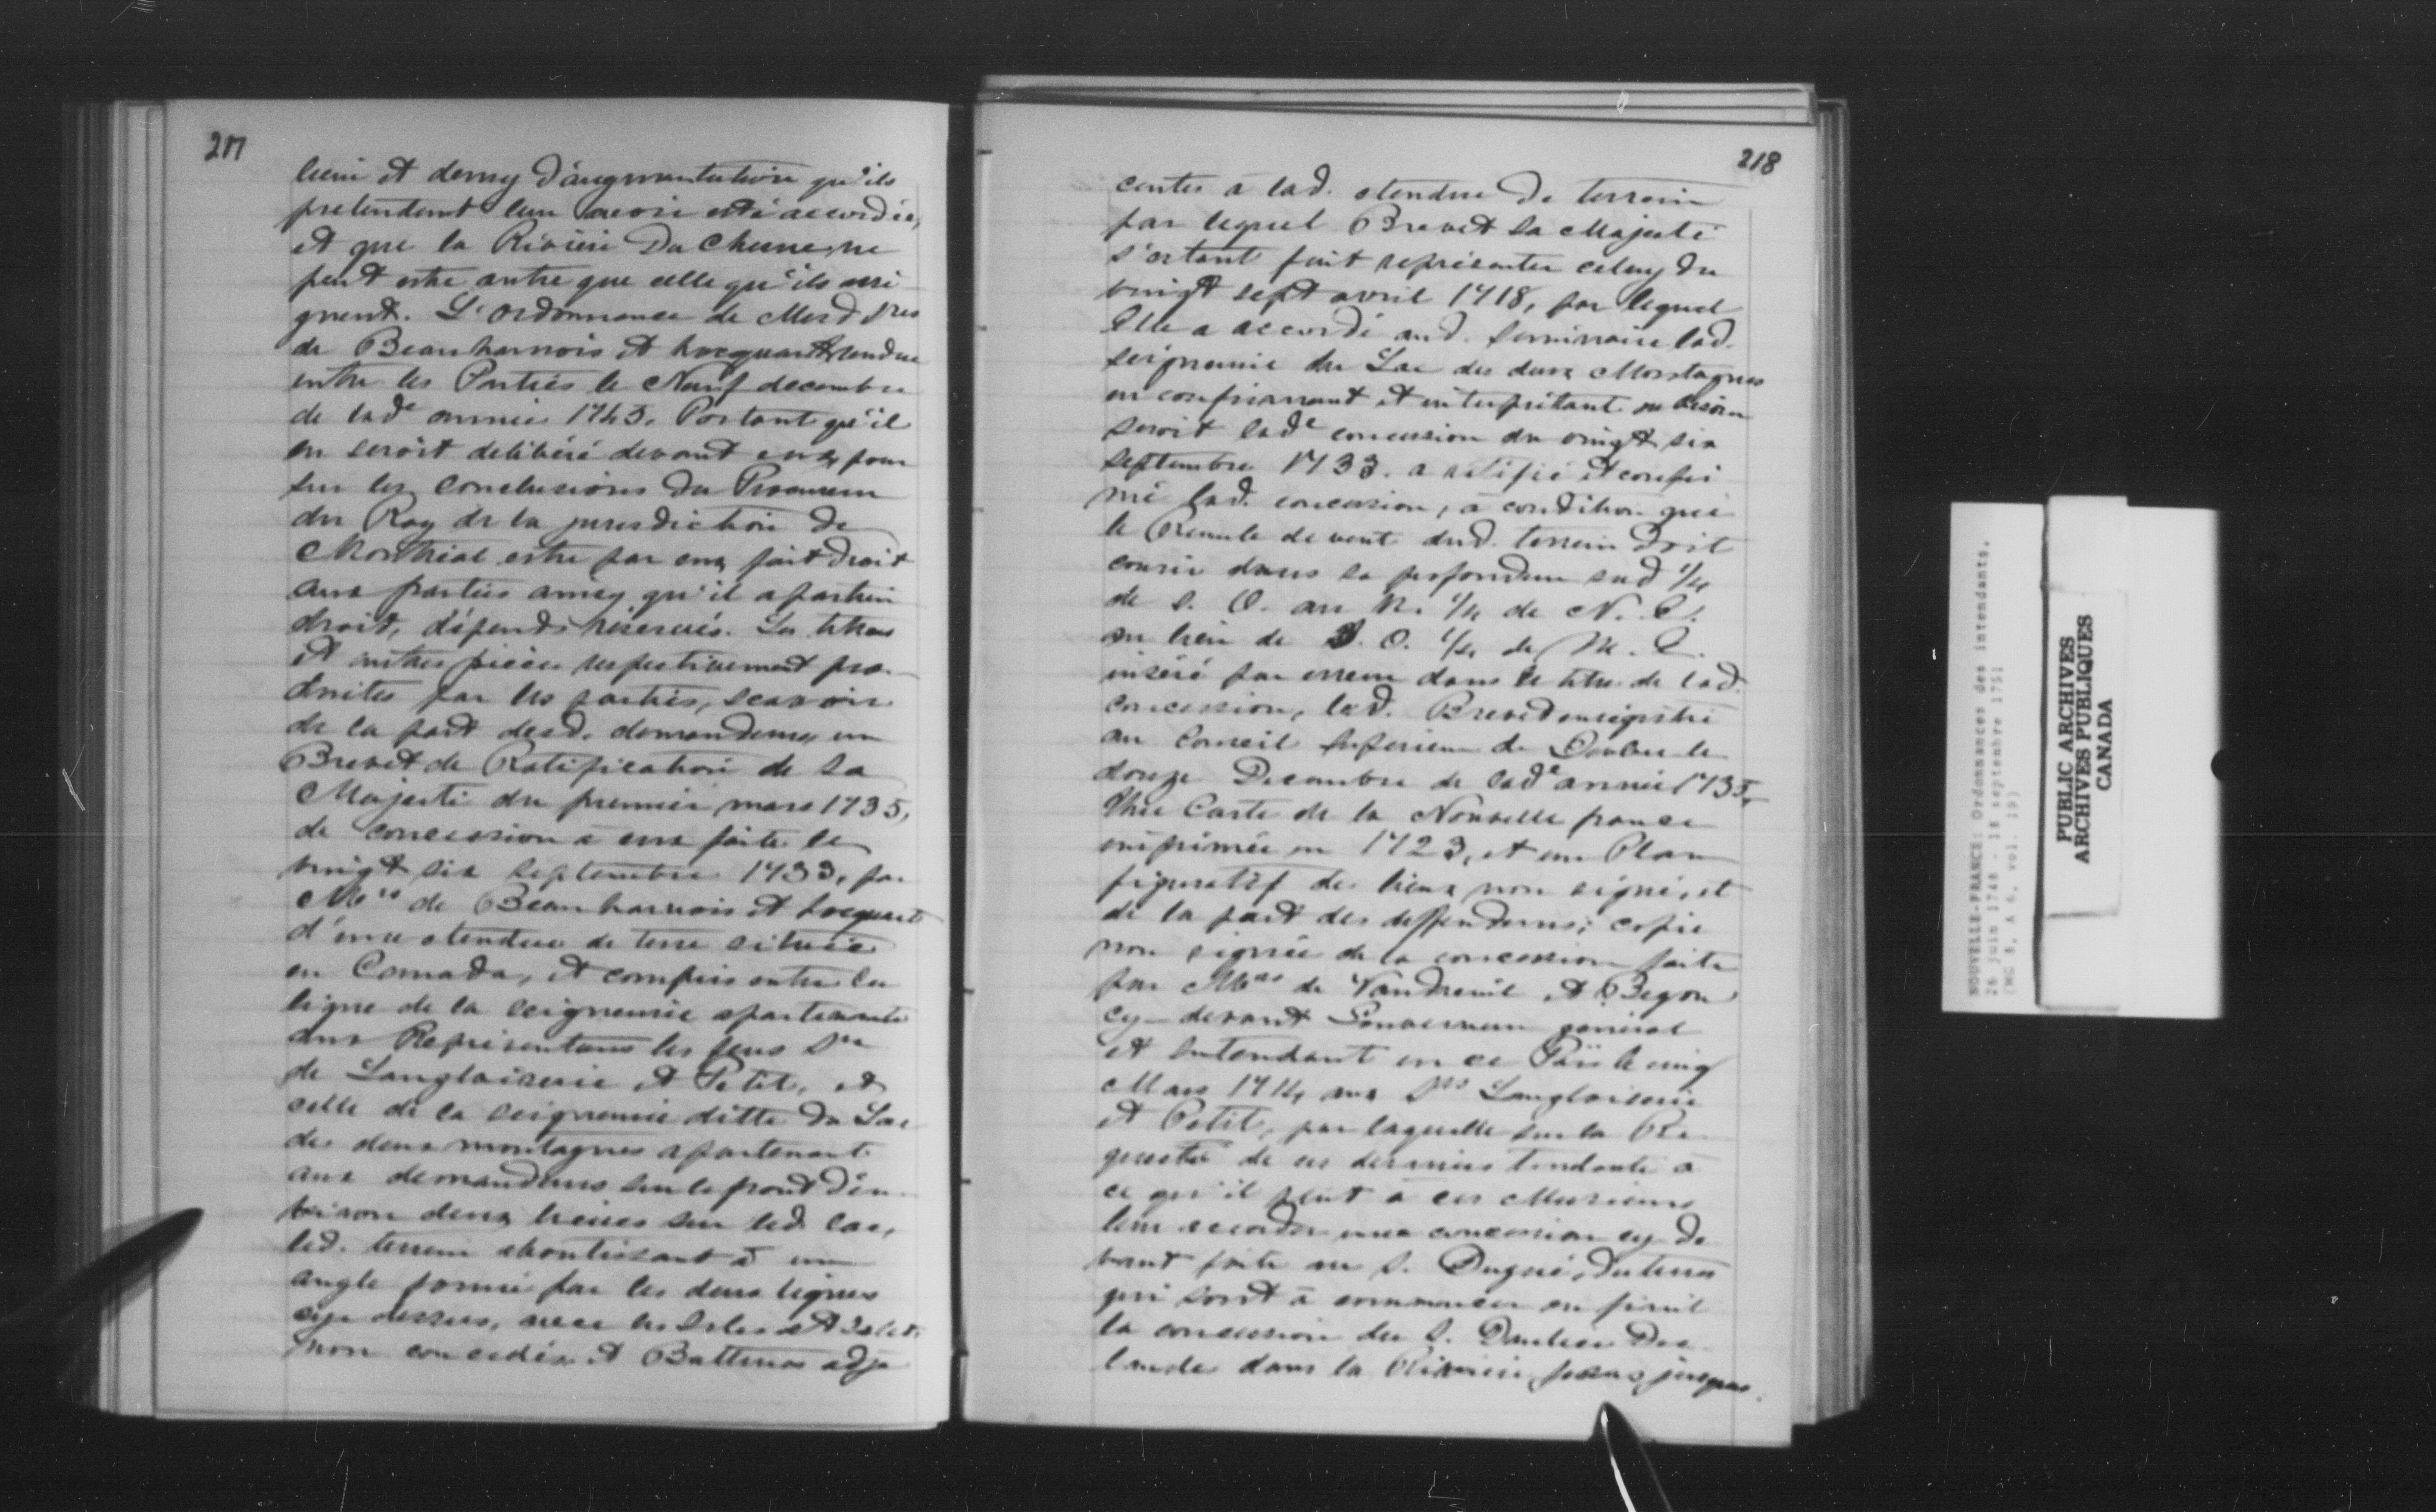 217
lieue et demy d'augmentation qu'ils
pretendent leur avoir esté accordée,
et que la Rivière Du Chesne, ne
peut estre autre que celle qu'ils assi
gnent. L'ordonnance de Mesd Srs
de Beauharnois et hocquart rendue
entre les Parties le Neuf decembre
de lade année 1745. Portant qu'il
en seroit delibéré devant eux pour
sur les conclusions Du Procureur
du Roy de la jurisdiction de
Montréal estre par eux fait droit
aux parties ainsy qu'il apartien
droit, dépends réservés. Les titres
et autres pièces respectivement pro-
duites par les parties, scavoir
de la part desd. demandeurs un
Brevet de Ratification de Sa
Majesté du premier mars 1735,
de concession à eux faite le
vingt six septembre 1733, par
Mrs de Beauharnois et hocquart
d'une etendue de terre située
en Canada, et compris entre la
ligne de la seigneurie apartenante
aux Representans les feus Srs
de Langloiserie et Petit, et
celle de la seigneurie ditte du Lac
des deux montagnes apartenant
aux demandeurs sur le front d'en-
viron deux lieues sur led. Lac,
led. terrein aboutissant à un
angle formé par les deux lignes
cy dessus, avec les Isles et Islets
non concedés et Battures adja
218
centes à lad. etendue de terrein
par lequel Brevet Sa Majesté
s'estant fait représenter celuy du
vingt sept avril 1718, par lequel
Elle a accordé aud. Seminaire lad.
seigneurie du Lac des deux Montagnes
en confirmant et interprétant au besoin
seroit lade concession du vingt six
septembre 1733. a ratifié et confir
mé lad. concession, à condition que
le Rumb de vent dud. terrein Doit
courir dans sa profondeur sud 1/4
de S. O. au N. 1/4 de N. E.
au lieu de S. O. 1/4 de
inséré par erreur dans le titre de lad.
concession, led. Brevet enregistré
au Conseil Superieur de Quebec le
douze Decembre de lade année 1735,
Une Carte de la Nouvelle france
imprimée en 1723, et un Plan
figuratif des lieux non signé, et
de la part des deffendeurs; copie
non signée de la concession faite
par Mrs de Vaudreuil et Begon
cy-devant Gouverneur général
et Intendant en ce Païs le cinq
Mars 1714, aux Srs Langloiserie
et Petit, par laquelle sur la Re-
queste de ces derniers tendante à
ce qu'il plut à ces Messieurs
leur accorder une concession cy de
vant faite au S. Dugué, des terres
qui sont à commencer où finit
la concession du S. Daulier Des
landes dans la Rivière Jesus jusques
NOUVELLE-FRANCE: Ordonnances des intendants,
26 juin 1748 - 18 septembre 1751
(MG 8, A 6, vol. 19)
PUBLIC ARCHIVES
ARCHIVES PUBLIQUES
CANADA